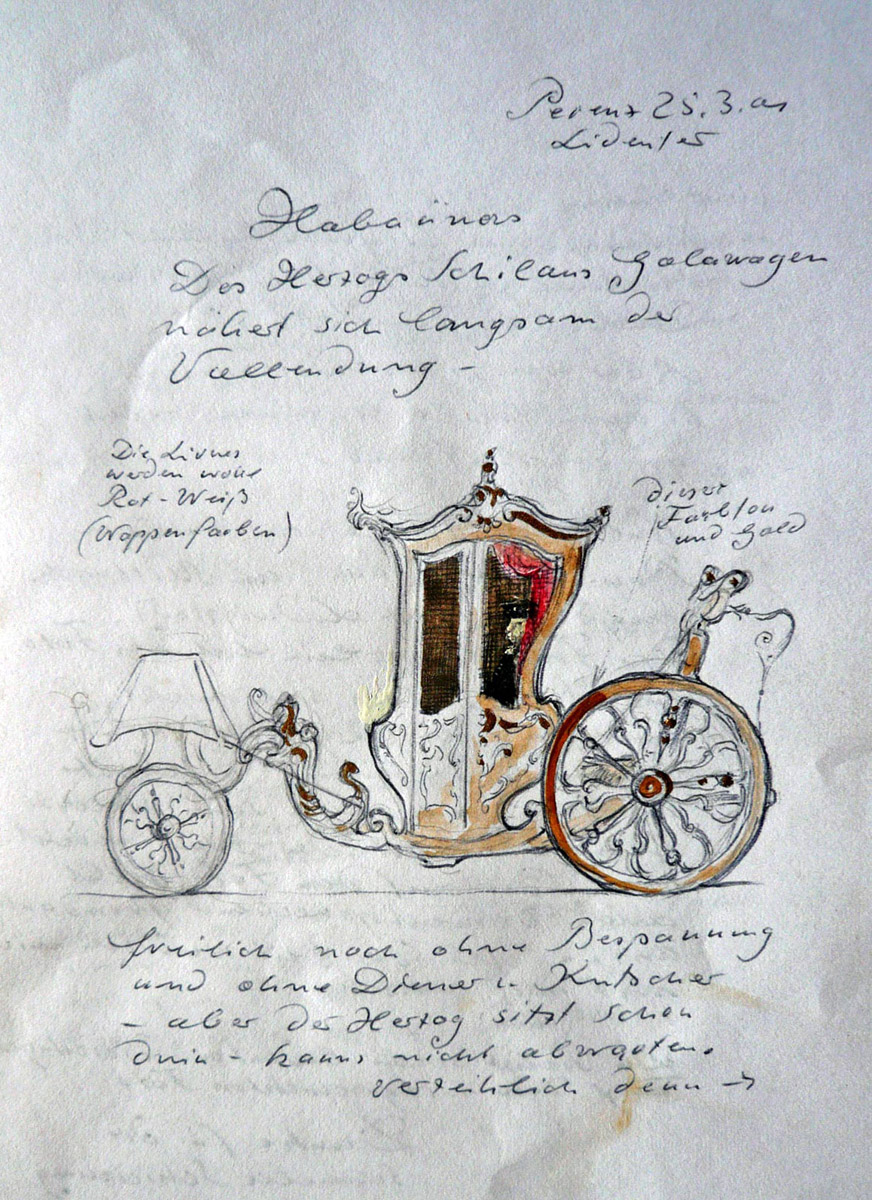 25.3.
Des Herzogs Schilans Galawagen
nähert sich langsam der
Vollendung –
Die Livrees
werden wohl
Rot-Weiß
(Wappenfarben)
dieser
Farbton
und Gold
freilich noch ohne Bespannung
und ohne Diener u. Kutscher
– aber der Herzog sitzt schon
drin – kanns nicht abwarten.
verzeihlich denn →